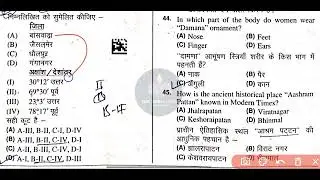 निम्नलिखित को सुमेलित कीजिए -
जिला
(A) बांसवाड़ा
(B) जैसलमेर
(C) धौलपुर
(D) गंगानगर
अक्षांश/देशांतर
(I) 30°12' उत्तर
(II) 69°30' पूर्व
(III) 23°3' उत्तर
(IV) 78°17' पूर्व
सही कूट है -
(A) A-III, B-II, C-I, D-IV
(B) A-II, B-III, C-IV, D-I
(C) A-III, B-II, C-IV, D-I
(D) A-I, B-II, C-IV, D-III
II
B-II
44. In which part of the body do women wear
"Damana" ornament?
(A) Nose (B) Feet
(C) Finger (D) Ears
"दामणा" आभूषण स्त्रियाँ शरीर के किस भाग में
पहनती हैं?
(A) नाक (B) पैर
(C) अँगुली (D) कान
45. How is the ancient historical place "Aashram
Pattan" known in Modern Times?
(A) Jhalapatan (B) Viratnagar
(C) Keshoraipatan (D) Bhinmal
प्राचीन ऐतिहासिक स्थल "आश्रम पट्टन" की
आधुनिक पहचान है -
(A) झालरापाटन (B) विराट नगर
(C) केशोरायपाटन (D)